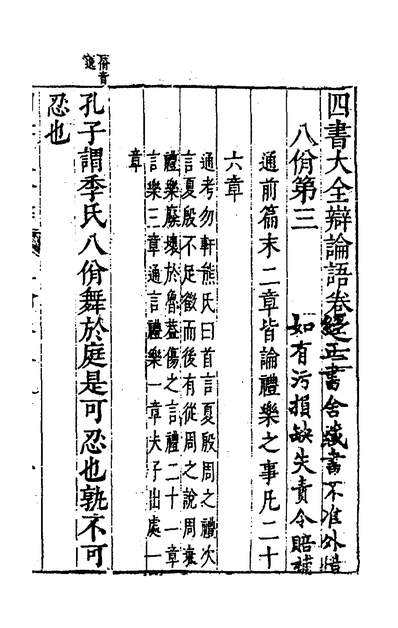 四書大全辯論語卷之二
經正書舍藏書不准外借
八佾第三
如有污損缺失責令賠補
通前篇末二章皆論禮樂之事凡二十
六章
通考勿軒熊氏曰首言夏殷周之禮次
言夏殷不足徵而後有從周之說周衰
禮樂廢壞於魯葢傷之言禮二十一章
言樂三章通言禮樂一章夫子出處一
章
佾音
逸
孔子謂季氏八佾舞於庭是可忍也孰不可
忍也